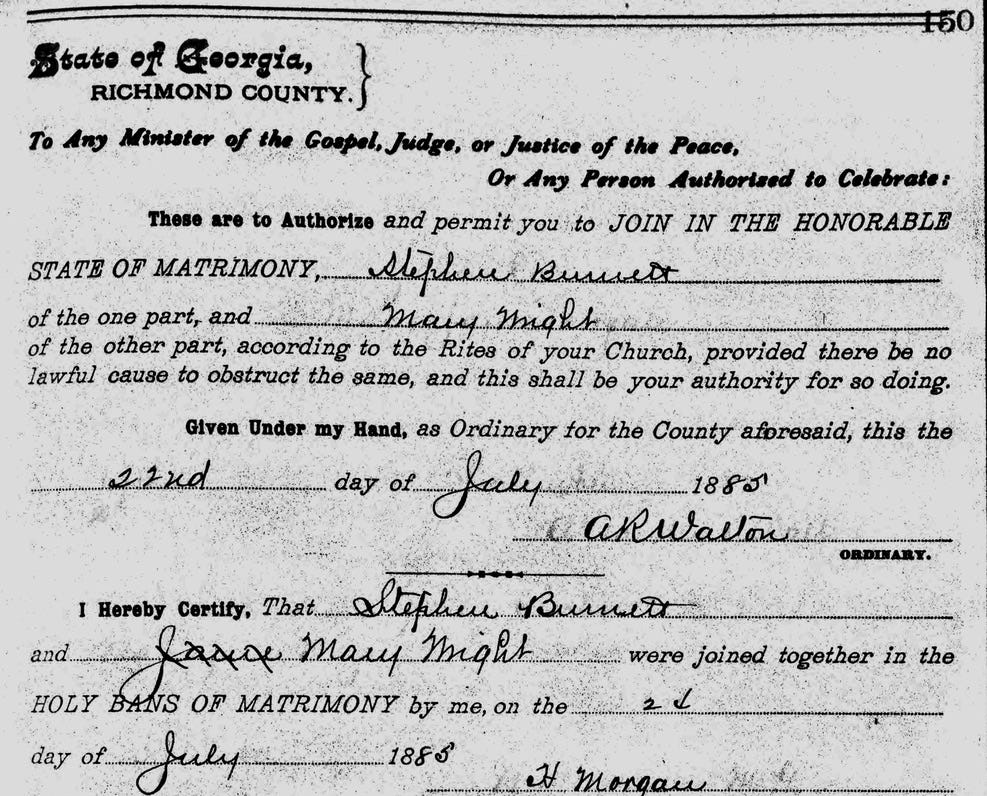 150
State of Georgia,
RICHMOND COUNTY.
To Any Minister of the Gospel, Judge, or Justice of the Peace,
Or Any Person Authorized to Celebrate:
These are to Authorize and permit you to JOIN IN THE HONORABLE
STATE OF MATRIMONY, Stephen Burnett
of the one part, and Mary Wright
of the other part, according to the Rites of your Church, provided there be no
lawful cause to obstruct the same, and this shall be your authority for so doing.
Given Under my Hand, as Ordinary for the County aforesaid, this the
22nd day of July 1885
A R Walton
ORDINARY.
I Hereby Certify, That Stephen Burnett
and Mary Wright were joined together in the
HOLY BANS OF MATRIMONY by me, on the 2
day of July 1885
H Morgan